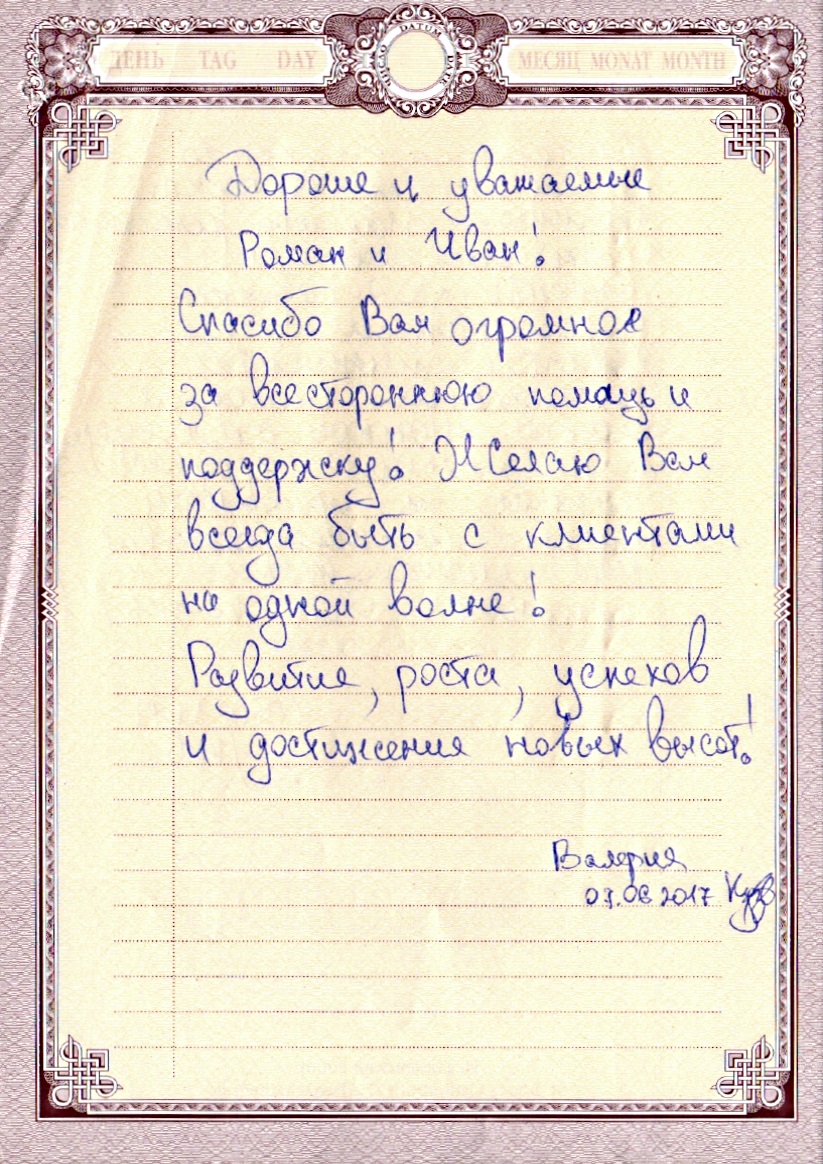 ДЕНЬ TAG DAY DATUM DATE МЕСЯЦ MONAT MONTH
Дорогие и уважаемые
Роман и Иван!
Спасибо Вам огромное
за всестороннюю помощь и
поддержку! Желаю Вам
всегда быть с клиентами
на одной волне!
Развития, роста, успехов
и достижения новых высот!
Валерия